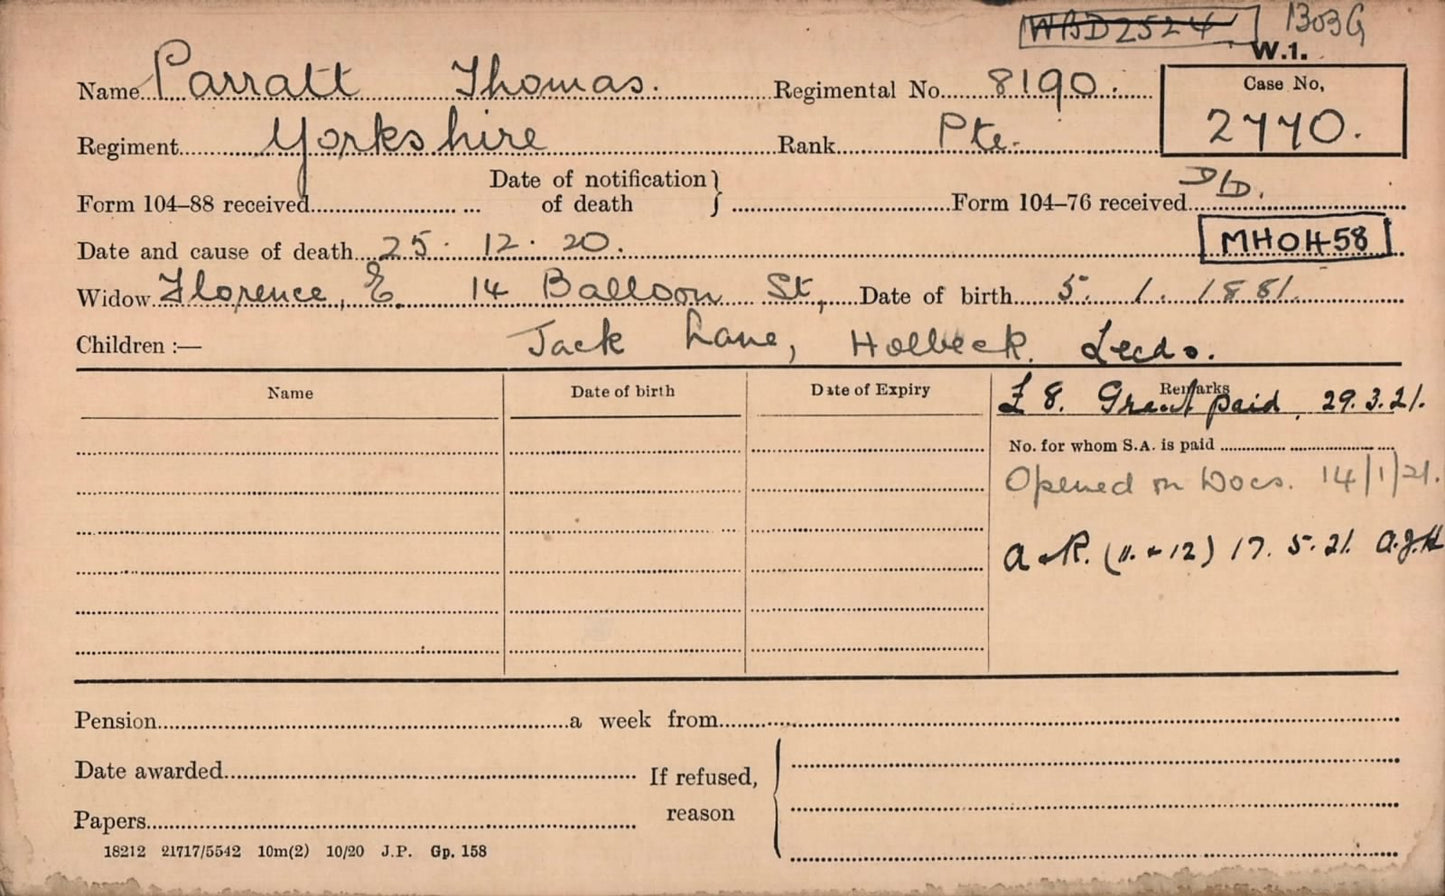 WBD2524 1303G
W.1.
Name Parratt Thomas. Regimental No. 8190. Case No,
Regiment Yorkshire Rank Pte. 2770.
Form 104–88 received Date of notification of death Form 104–76 received D/D.
Date and cause of death 25. 12. 20. MHOH58
Widow Florence, E. 14 Balloon St, Date of birth 5. 1. 1881.
Children :— Jack Lane, Holbeck. Leeds.
Name Date of birth Date of Expiry Remarks
£8. Grant paid, 29.3.21.
No. for whom S.A. is paid
Opened on Docs. 14/1/21.
(11. + 12) 17. 5. 21. A.J.H
Pension a week from
Date awarded If refused,
Papers reason
18212 21717/5542 10m(2) 10/20 J.P. Gp. 158